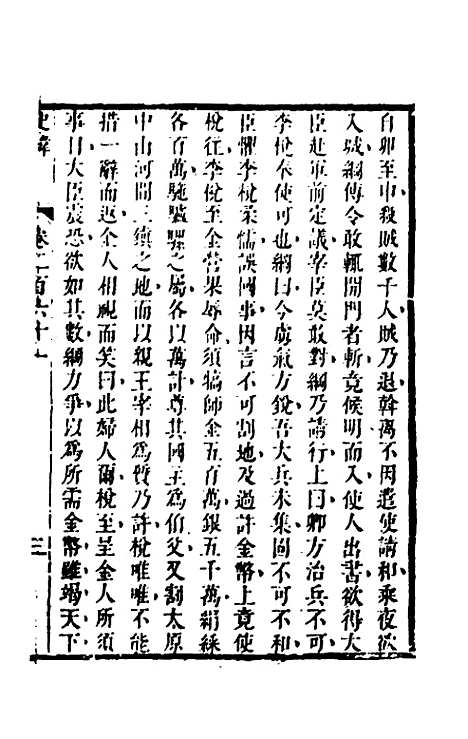 自卯至申殺賊數千人賊乃退斡离不因遣使請和乘夜欲
入城綱傳令敢輒開門者斬竟候明而入使人出書欲得大
臣赴軍前定議宰臣莫敢對綱乃請行上曰卿方治兵不可
李梲奉使可也綱曰今虜氣方銳吾大兵未集固不可不和
臣懼李梲柔懦誤國事因言不可割地及過許金幣上竟使
梲往李梲至金營果辱命須犒師金五百萬銀五千萬絹綵
各百萬駞驢騾之屬各以萬計尊其國主爲伯父又割太原
中山河間三鎭之地而以親王宰相爲質乃許梲唯唯不能
措一辭而返金人相覘而笑曰此婦人爾梲至呈金人所須
事目大臣震恐欲如其數綱力爭以爲所需金幣雖竭天下
史緯
卷二百六十
三